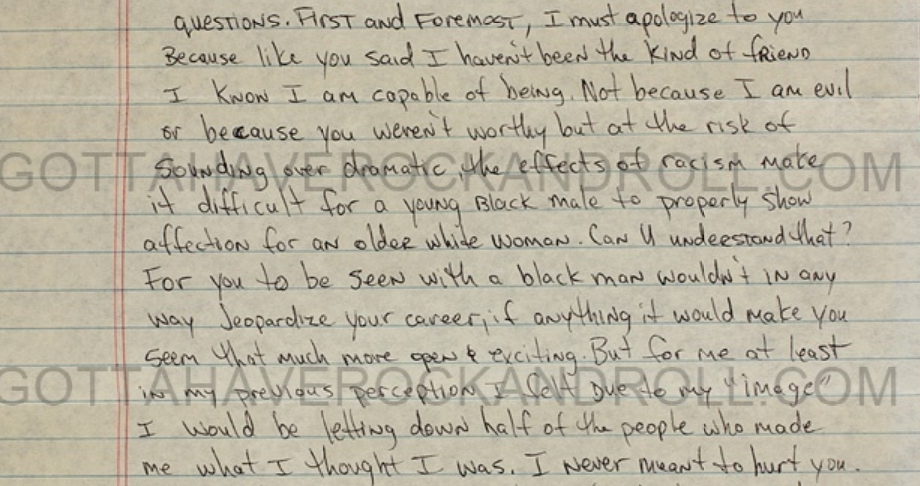 questions. First and Foremost, I must apologize to you
Because like you said I haven't been the kind of friend
I know I am capable of being. Not because I am evil
or because you weren't worthy but at the risk of
sounding over dramatic, the effects of racism make
it difficult for a young Black male to properly show
affection for an older white woman. Can U understand that?
For you to be seen with a black man wouldn't in any
way Jeopardize your career, if anything it would make you
seem that much more open & exciting. But for me at least
in my previous perception I felt Due to my "image"
I would be letting down half of the people who made
me what I thought I was. I never meant to hurt you.
GOTTAHAVEROCKANDROLL.COM
GOTTAHAVEROCKANDROLL.COM